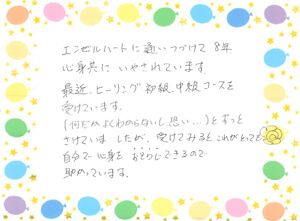 エンゼルハートに通いつづけて 8年
心身共に いやされています。
最近、ヒーリング 初級、中級 コースを
受けています。
(何だかよくわからないし 恐い…)と ずっと
さけていましたが、受けてみると これがとっても
自分で 心身を おそうじできるので
助かっています。